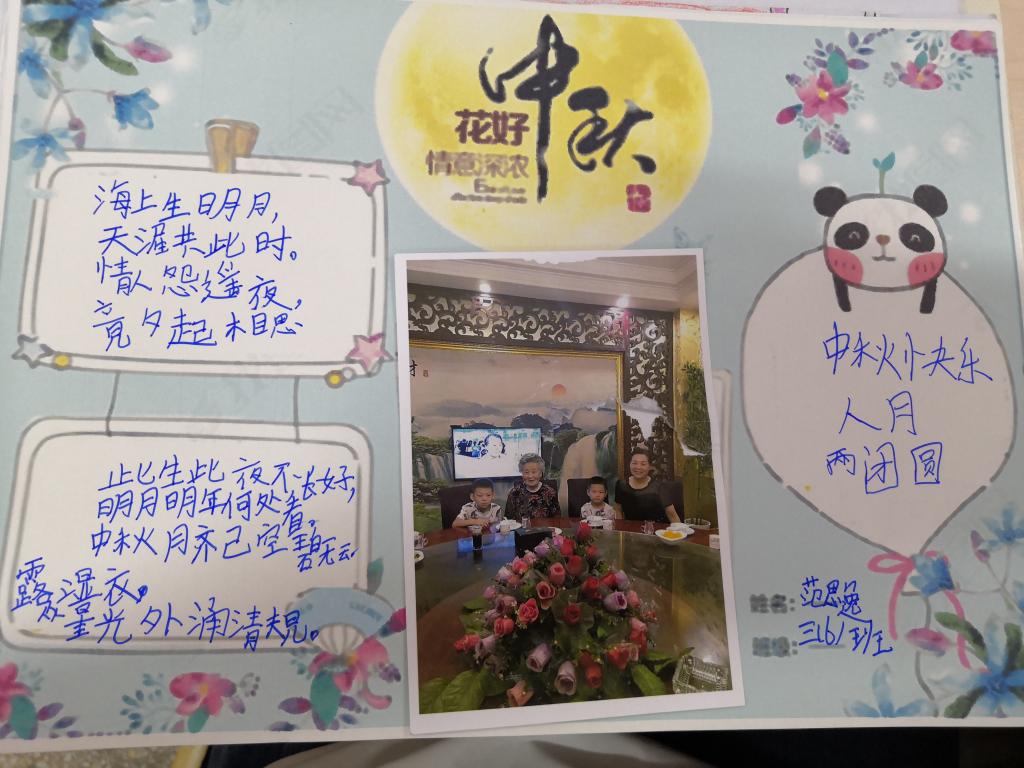 中秋
花好
情意深农
海上生明月,
天涯共此时。
情人怨遥夜,
竟夕起相思
此生此夜不长好,
明月明年何处看,
中秋月齐己空碧无云
露湿衣,
星光外涌清规。
中秋快乐
人月
两团圆
姓名:范思逸
班级:三(6)班